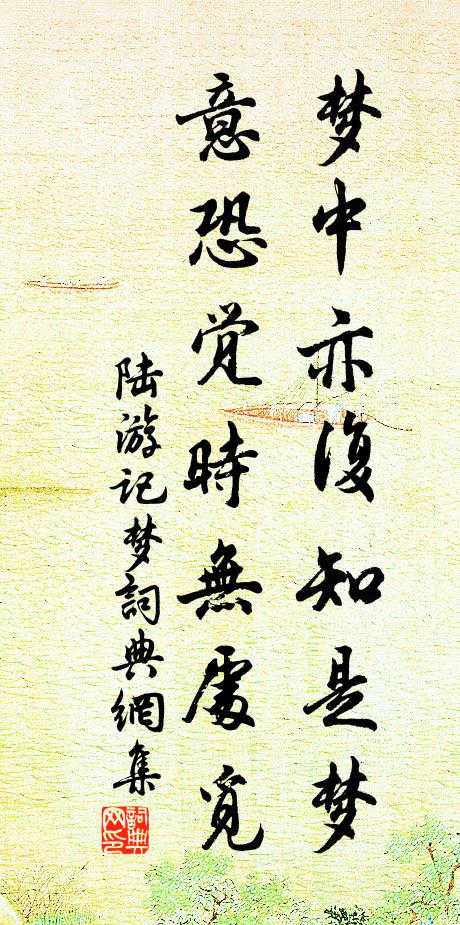 梦中亦復知是梦
意恐觉時無處覓
陆游记梦詞典網集
詞典
网印